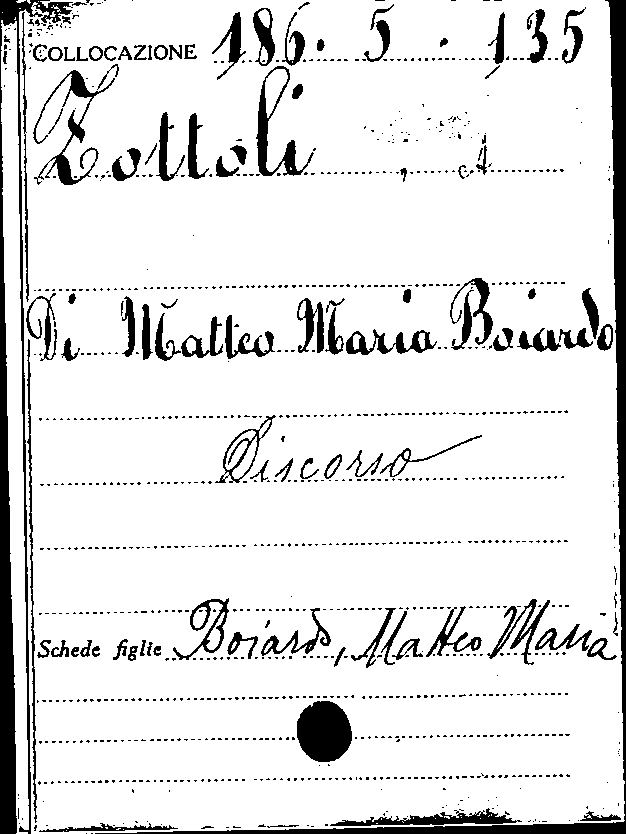 COLLOCAZIONE 186. 5. 135
Zottoli, A
Di Matteo Maria Boiardo
Discorso
Schede figlie Boiardo, Matteo Maria